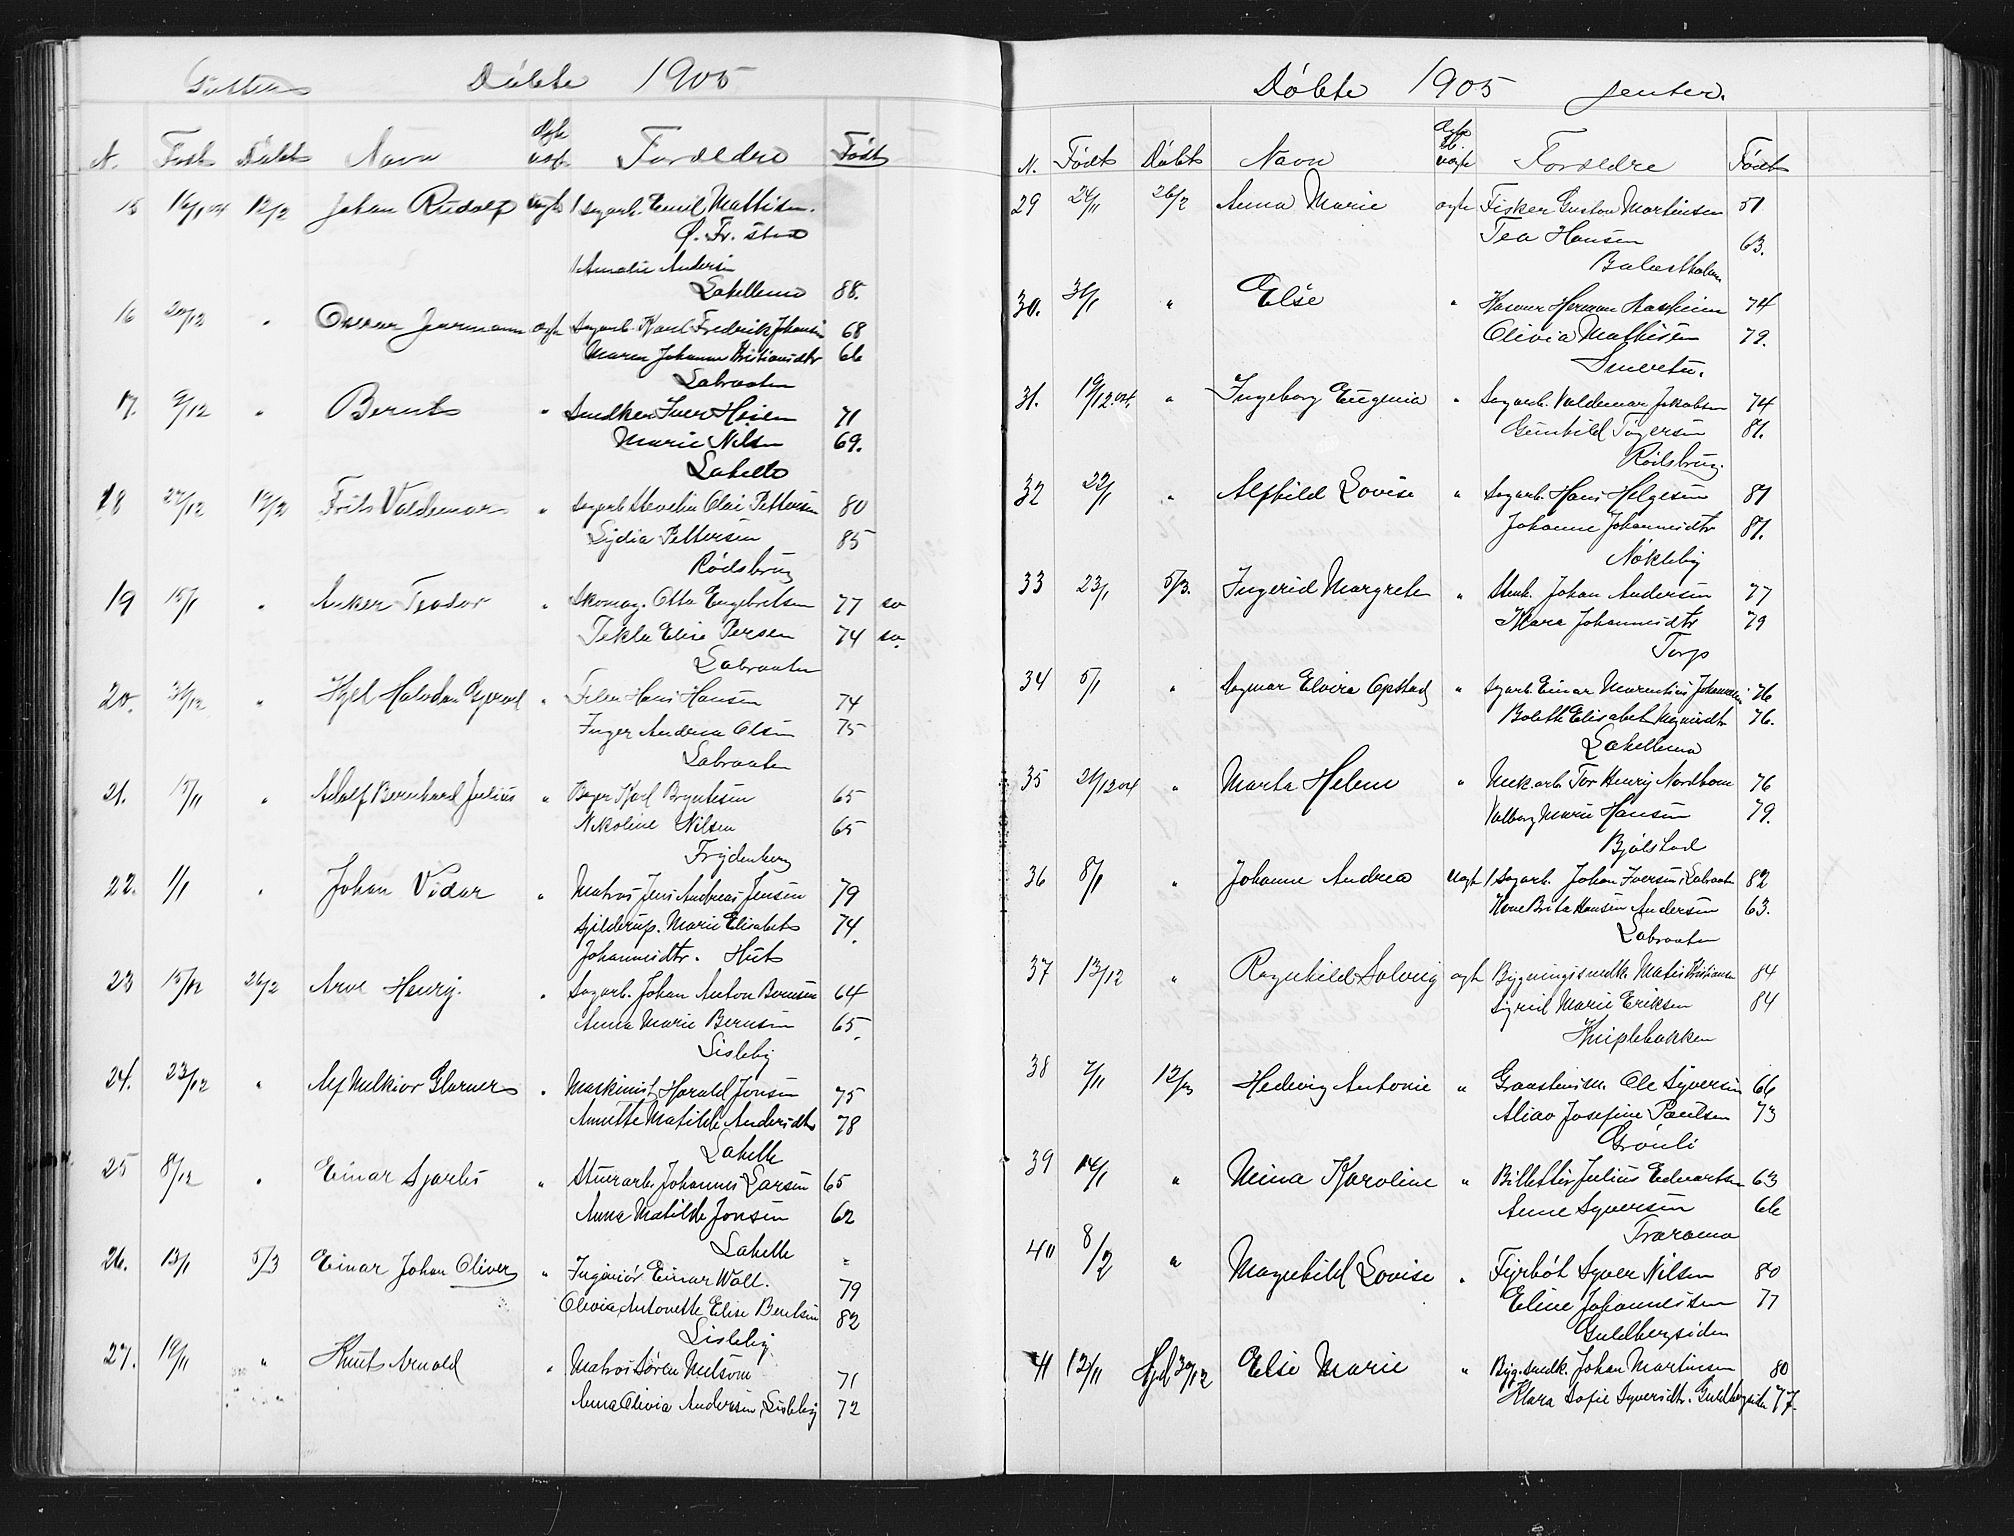 Gutter Døbte 1905
N. Født Døbt Navn Ægte uægt Foreldre Født
15 16/1 04 12/2 Johan Rudolf uægte 1 Sagarb. Emil Mathisen.
Ø. Fr. sted
1 Amalie Andersen
Lahellemo 88.
16 20/12 " Oscar Jermann ægte Sagarb. Karl Fredrik Johansen 68
Maren Johanne Kristiansdtr 66
Labraaten
17. 9/12 " Bernt " Smedken Iver Heien 71
Marie Nilsen 69.
Lahelle
18 27/12 12/2 Frits Valdemar " Sagarb Olai Pettersen 80
Lydia Pettersen 85
Rödsbrug
19 15/1 " Anker Teodor " Skomag. Otto Engebretsen 77 sv
Tekla Elise Persen 74 sv.
Labraaten
20. 31/12 " Kjel Halvdan " Filer Hans Hansen 74
Inger Andrea Olsen 75
Labraaten
21. 15/11 " Adolf Bernhard Julius " Karl Byntesen 65
Nikoline Nilsen 65
Frydenberg
22. 1/1 " Johan Vidar " Matros Jens Andreas Jensen 79
Gjilderup. Marie Elisabet 74.
Johannesdtr. Hut
23 15/12 26/2 Arve Henry. " Sagarb. Johan Anton Bernsen 64
Anna Marie Bernsen 65.
Lisleby
24. 23/12 " Alf Melkior Glarner " Maskinist Harald Jonsen 75
Annette Matilde Andersdtr 78
Lahelle
25 8/12 " Einar Hjartis " Stuerarb. Johannes Larsen 65
Anna Matilde Jonsen 62
Lahelle
26. 13/1 5/3 Einar Johan Oliver " Ingeniør Einar Wall. 79
Olevia Antonette Elise Bentsen 82
Lisleby
27. 19/11 " Knut Arnold " Matros Søren Melsom 71
Anna Olivia Andersen, Lisleby 72
Døbte 1905 Jenter.
N. Født Døbt Navn Ægte el. uægte Foreldre Født
29 24/11 26/2 Anna Marie ægte Fisker Gustav Martinsen 51
Tea Hansen 63.
Balastholmen
30. 31/1 " Else " Herman Aasheim 74
Olivia Mathisen 79.
Smertu.
31. 19/12 04. " Ingeborg Eugenia " Sagarb. Valdemar Jakobsen 74
Gunhild Tögersen 81.
Rödsbrug.
32 22/1 " Alfhild Lovise " Sagarb. Hans Helgesen 81
Johanne Johannesdtr 81.
Nökleby
33 23/1 5/3. Ingerid Margrete " Stenh. Johan Andersen 77
Klara Johannesdtr 79
Torp
34 5/1 " Dagmar Elvira Opstad " Sagarb Einar Marentius Johannesen 76
Bolette Elisabet Magnusdtr 76.
Lahellemo
35 21/12 04 " Marta Helene " Mek.arb. Tor Henry Nordbom 76
Valborg Marie Hansen 79.
Bjölstad
36 8/1 " Johanne Andrea uægte 1 Sagarb. Johan Iversen, Labraaten 82
Kone Brita Hansen Andersen 63.
Labraaten
37 13/12 " Ragnhild Solveig ægte Bygningssnedk. Matis Kristiansen 84
Sigrid Marie Eriksen 84
Kniplebakken
38 7/11 12/3 Hedevig Antonie " Graastensm. Ole Syversen 66
Josefine Paulsen 73
Grönli
39 14/1 " Mina Karoline " Billettör Julius Edvartsen 63
Anne Syversen 66
Traramo
40 8/2 " Magnhild Lovise " Fyrböt Syver Nilsen 80
Eline Johannesen 77
Guldbergsiden
41 12/11 Hjd 30/12 Else Marie " Byg.snedk. Johan Martinsen 80
Klara Sofie Syversdtr. Guldbergsiden 77.